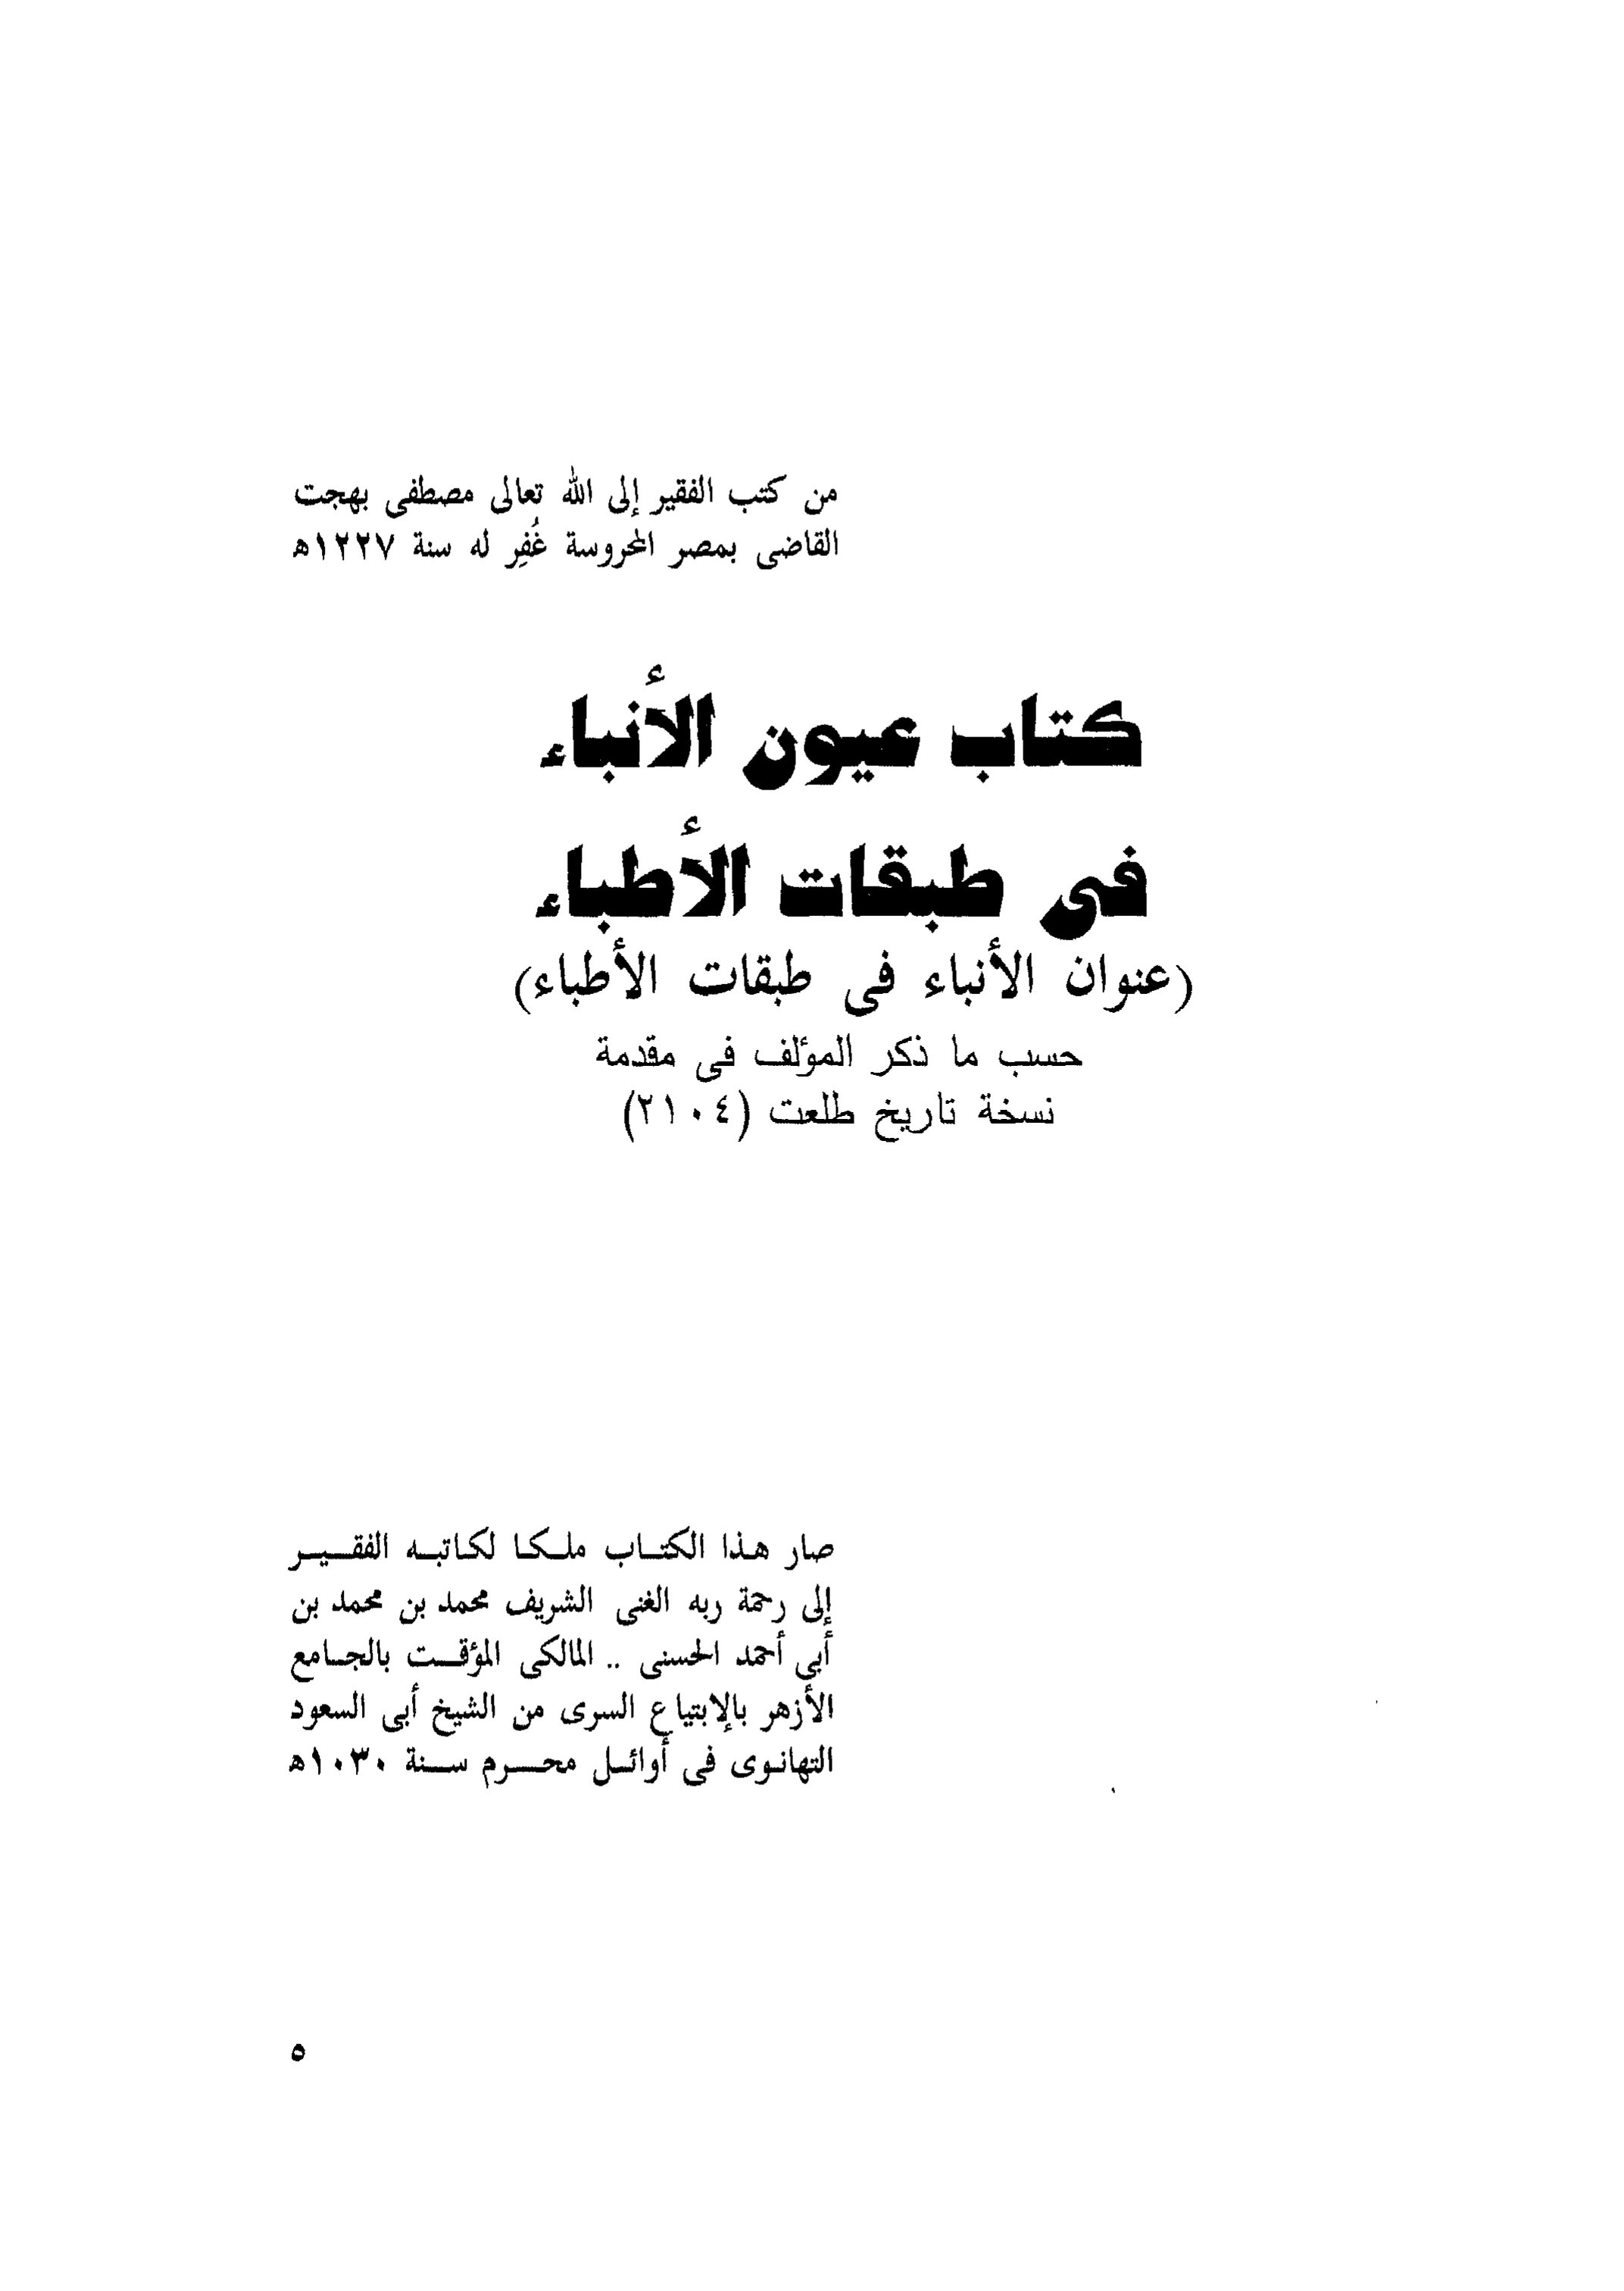 من كتب الفقير إلى الله تعالى مصطفى بهجت
القاضى بمصر المحروسة غُفِر له سنة ١٢٢٧ه
كتاب عيون الأنباء
فى طبقات الأطباء
(عنوان الأنباء فى طبقات الأطباء)
حسب ما ذكر المؤلف فى مقدمة
نسخة تاريخ طلعت (٢١٠٤)
صار هذا الكتاب ملكا لكاتبه الفقير
إلى رحمة ربه الغنى الشريف محمد بن محمد بن
أبى أحمد الحسنى .. المالكى المؤقت بالجامع
الأزهر بالإبتياع السرى من الشيخ أبى السعود
التهانوى فى أوائل محرم سنة ١٠٣٠ه
٥